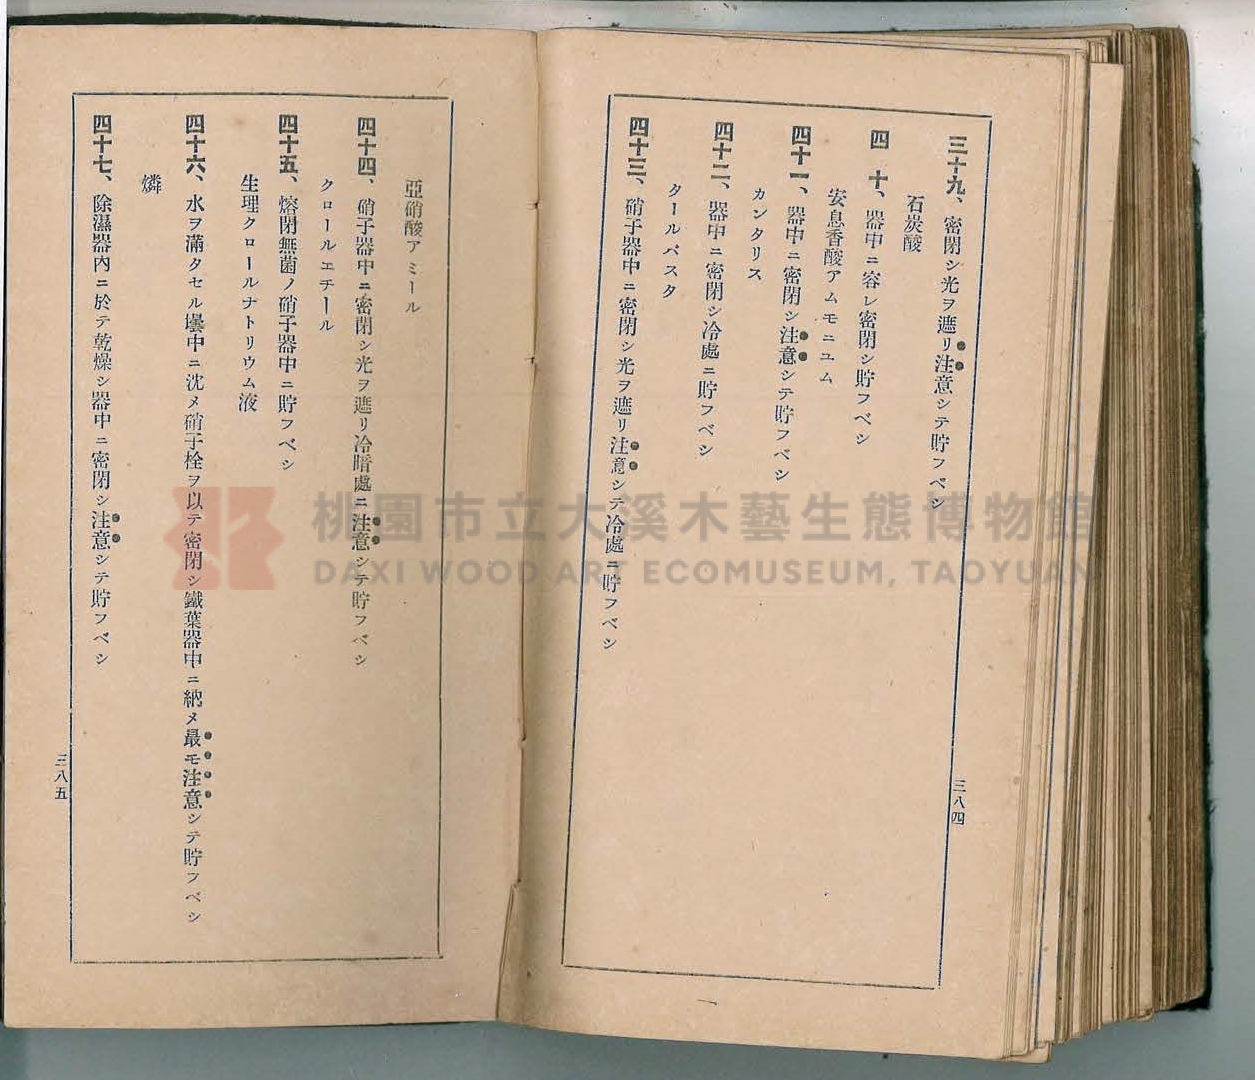 三十九、密閉シ光ヲ遮リ注意シテ貯フベシ
石炭酸
四十、器中ニ容レ密閉シ貯フベシ
安息香酸アムモニユム
四十一、器中ニ密閉シ注意シテ貯フベシ
カンタリス
四十二、器中ニ密閉シ冷處ニ貯フベシ
タールパスタ
四十三、硝子器中ニ密閉シ光ヲ遮リ注意シテ冷處ニ貯フベシ
三八四
亞硝酸アミール
四十四、硝子器中ニ密閉シ光ヲ遮リ冷暗處ニ注意シテ貯フベシ
クロールエチール
四十五、熔閉無菌ノ硝子器中ニ貯フベシ
生理クロールナトリウム液
四十六、水ヲ滿タセル壜中ニ沈メ硝子栓ヲ以テ密閉シ鐵葉器中ニ納メ最モ注意シテ貯フベシ
燐
四十七、除濕器內ニ於テ乾燥シ器中ニ密閉シ注意シテ貯フベシ
三八五
桃園市立大溪木藝生態博物館
DAXI WOOD ART ECOMUSEUM, TAOYUAN